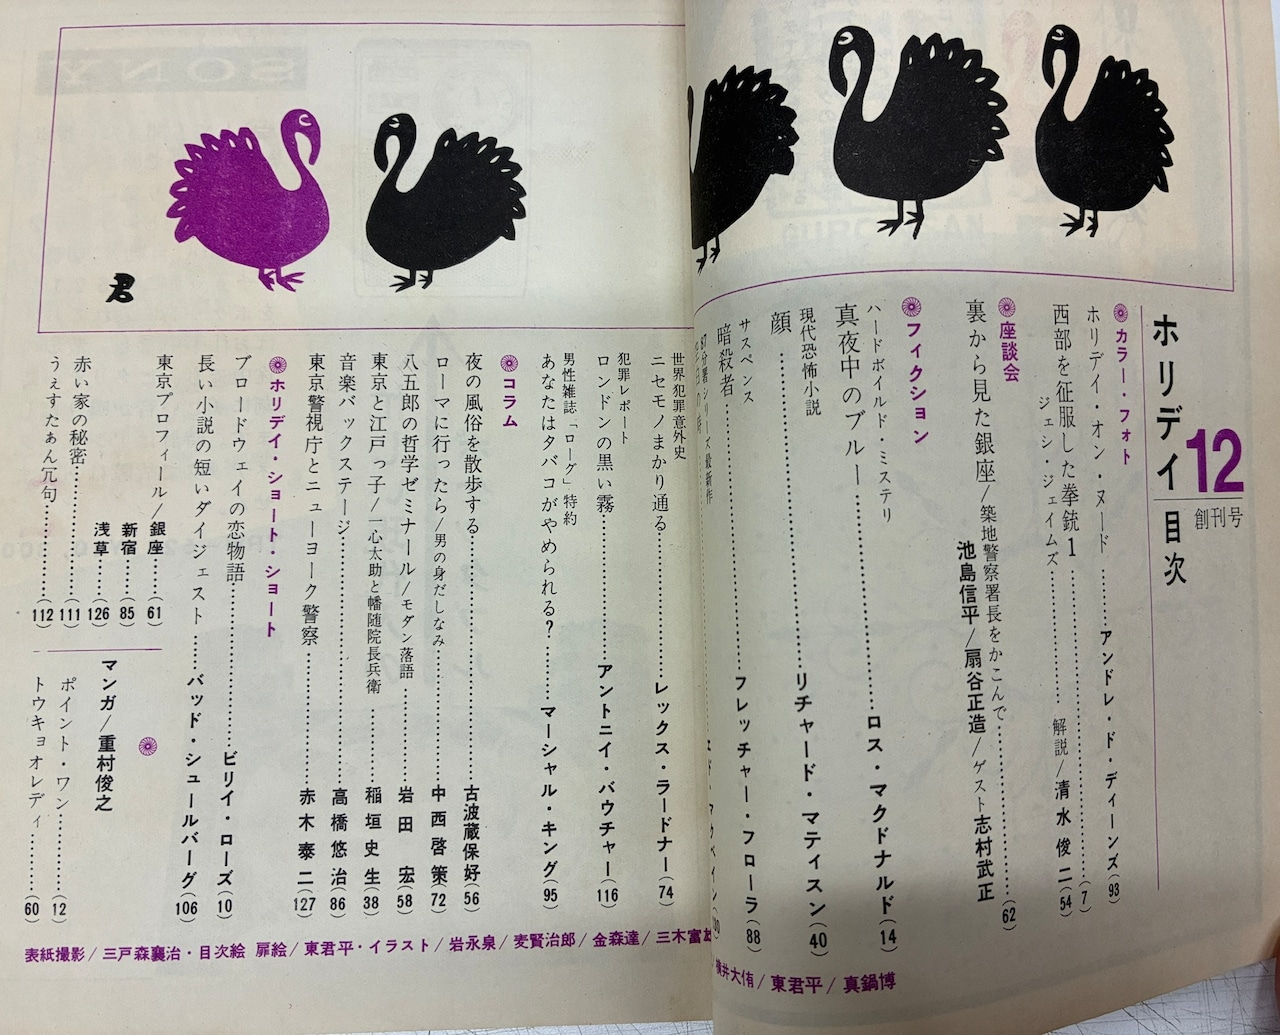 ホリデイ目次
12
創刊号
カラー・フォト
ホリデイ・オン・ヌード……アンドレ・ド・ディーンズ(93)
西部を征服した拳銃1……(7)
ジェシ・ジェイムズ……解説/清水俊二(54)
座談会
裏から見た銀座/築地警察署長をかこんで……(62)
池島信平/扇谷正造/ゲスト志村武正
フィクション
ハードボイルド・ミステリ
真夜中のブルー……ロス・マクドナルド(14)
現代恐怖小説
顔……リチャード・マティスン(40)
サスペンス
暗殺者……フレッチャー・フローラ(88)
87分署シリーズ最新作
世界犯罪意外史
ニセモノまかり通る……レックス・ラードナー(74)
犯罪レポート
ロンドンの黒い霧……アントニイ・バウチャー(116)
男性雑誌「ローグ」特約
あなたはタバコがやめられる?……マーシャル・キング(95)
コラム
夜の風俗を散歩する……古波蔵保好(56)
ローマに行ったら/男の身だしなみ……中西啓策(72)
八五郎の哲学ゼミナール/モダン落語……岩田宏(58)
東京と江戸っ子/一心太助と幡随院長兵衛……稲垣史生(38)
音楽バックステージ……高橋悠治(86)
東京警視庁とニューヨーク警察……赤木泰二(127)
ホリデイ・ショート・ショート
ブロードウェイの恋物語……ビリイ・ローズ(10)
長い小説の短いダイジェスト……バッド・シュールバーグ(106)
東京プロフィール/銀座……(61)
新宿……(85)
浅草……(126)
赤い家の秘密……(111)
うぇすたぁん冗句……(112)
マンガ/重村俊之
ポイント・ワン……(12)
トウキョオレディ……(60)
表紙撮影/三戸森襄治・目次絵 扉絵/東君平・イラスト/岩永泉/麦賢治郎/金森達/三木富雄
横井大侑/東君平/真鍋博
君
SONY